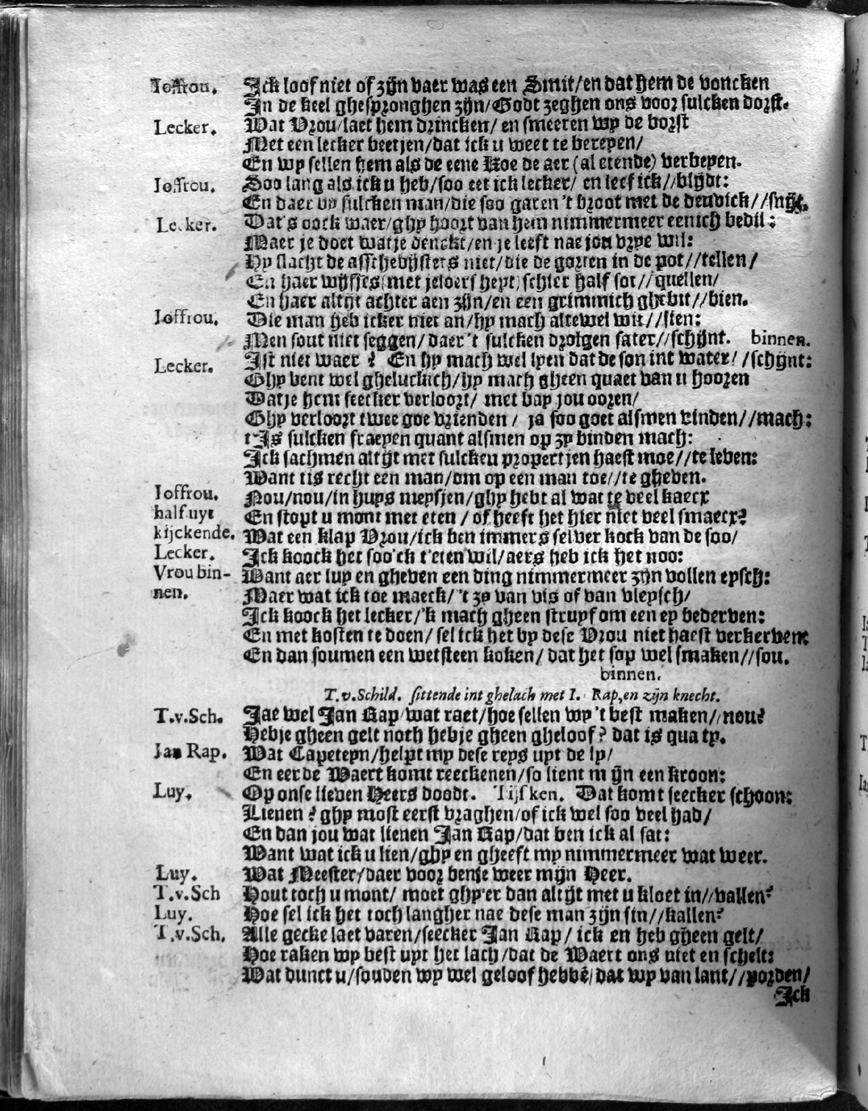 Joffrou. Ick loof niet of zijn vaer was een Smit/en dat hem de voncken
In de keel ghespronghen zijn/Godt zeghen ons voor sulcken dorst.
Lecker. Wat Vrou/laet hem drincken/ en smeeren wy de borst
Met een lecker beetjen/dat ick u weet te bereyen/
En wy sellen hem als de eene Koe de aer (al etende) verbeyen.
Joffrou. Soo lang als ick u heb/soo eet ick lecker/ en leef ick//blijdt:
En daer by sulcken man/die soo garen 't broot met de deuvick//snijt.
Lecker. Dat's oock waer/ghy hoort van hem nimmermeer eenich bedil:
Maer je doet watje denckt/en je leeft nae jou vrye wil:
Hy slacht de asschevijsters niet/die de gorten in de pot//tellen/
En haer wijffjes(met jeloersheyt)schier half sot//quellen/
En haer altijt achter aen zijn/en een grimmich ghebit//bien.
Joffrou. Die man heb icker niet an/hy mach altewel wit//sien:
Men sout niet seggen/daer 't sulcken droigen sater//schijnt. binnen.
Lecker. Ist niet waer? En hy mach wel lyen dat de son int water//schijnt:
Ghy bent wel gheluckich/hy mach gheen quaet van u hooren
Watje hem seecker verloort/ met bay jou ooren/
Ghy verloort twee goe vrienden/ ja soo goet alsmen vinden//mach:
t'Is sulcken fraeyen quant alsmen op zy binden mach:
Ick sachmen altijt met sulcken propertjen haest moe//te leven:
Want tis recht een man/om op een man toe//te gheven.
Joffrou. Nou/nou/in huys meysjen/ghy hebt al wat te veel kaecx
half uyt En stopt u mont met eten/of heeft het hier niet veel smaecx?
kijckende. Wat een klap Vrou/ick ben immers selver kock van de soo/
Lecker. Ick koock het soo'ck t'eten wil/aers heb ick het noo:
Vrou bin- Want aer luy en gheven een ding nimmermeer zijn vollen eysch:
nen. Maer wat ick toe maeck/'t zy van vis of van vleysch/
Ick koock het lecker/'k mach gheen struyf om een ey bederven:
En met kosten te doen/ sel ick het by dese Vrou niet haest verkerven:
En dan soumen een wetsteen koken/ dat het sop wel smaken//sou.
binnen.
T.v.Schild. sittende int ghelach met I. Rap,en zijn knecht.
T.v.Sch. Jae wel Jan Rap/wat raet/hoe sellen wy 't best maken//nou?
Hebje gheen gelt noth hebje gheen gheloof? dat is qua ty.
Jan Rap. Wat Capeteyn/helpt my dese reys uyt de ly/
En eer de Waert komt reeckenen/so lient mijn een kroon:
Luy. Op onse lieven Heers doodt. Tijsken. Dat komt seecker schoon:
Lienen? ghy most eerst vraghen/of ick wel soo veel had/
En dan jou wat lienen Jan Rap/dat ben ick al sat:
Want wat ick u lien/ghy en gheeft my nimmermeer wat weer.
Luy. Wat Meester/daer voor benje weer mijn Heer.
T.v.Sch Hout toch u mont/ moet ghy'er dan altijt met u kloet in//vallen?
Luy. Hoe sel ick het toch langher nae dese man zijn sin//kallen?
T.v.Sch. Alle gecke laet varen/seecker Jan Rap/ ick en heb gheen gelt/
Hoe raken wy best uyt het lach/dat de Waert ons niet en schelt:
Wat dunct u/souden wy wel geloof hebbē/dat wy van lant//porden/
Ick